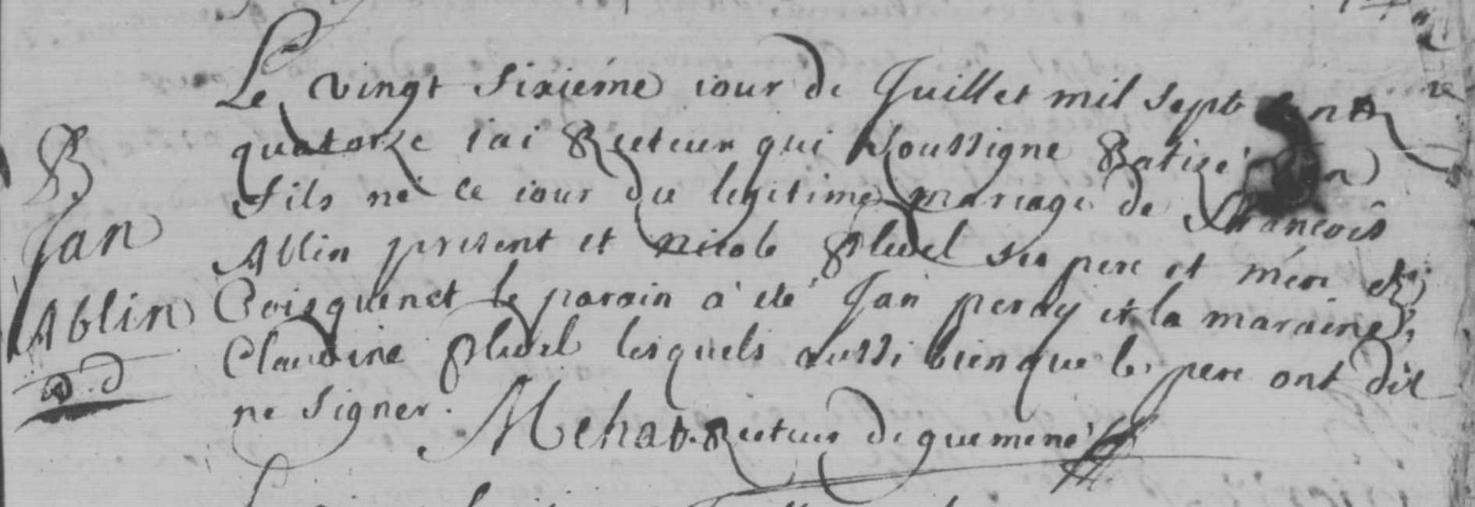 Le vingt sixiéme iour de Juillet mil sept cent
quatorze i'ai Recteur qui soussigne Batizé Jan
B
Jan
Ablin
fils né ce iour du legitime mariage de François
Ablin present et nicole pluel ses pere et mére de
Coisquenet le parain a été Jan perdy et la maraine
Claudine pluel lesquels aussi bien que le pere ont dit
ne signer. Mehat Recteur de guemené